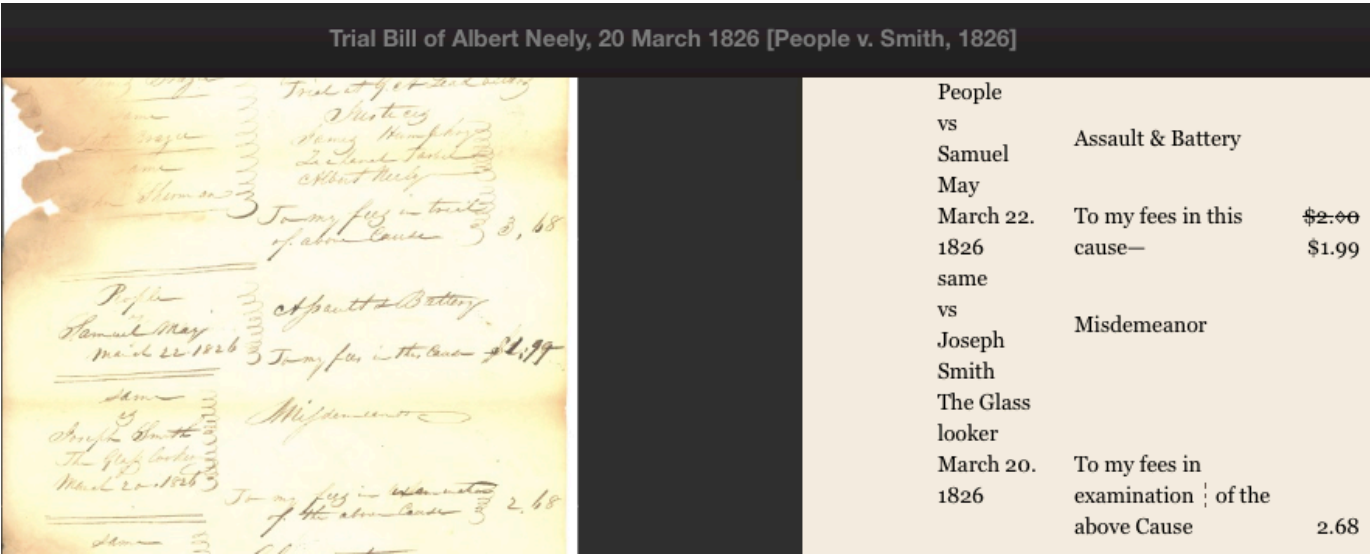 Trial Bill of Albert Neely, 20 March 1826 [People v. Smith, 1826]
same
same
Sherman
Trial at
Justices
James Humphrey
Zechariah Tarble
Albert Neely
To my fees in trial
of above Cause 3,68
People
vs
Samuel May
March 22 1826
Assault & Battery
To my fees in this Cause $1.99
same
vs
Joseph Smith
The Glass looker
March 20. 1826
Misdemeanor
To my fees in examination
of the above Cause 2.68
same
People
vs
Samuel
May
Assault & Battery
March 22. To my fees in this $2.00
1826 cause— $1.99
same
vs
Joseph
Smith
The Glass
looker
Misdemeanor
March 20. To my fees in
1826 examination ¦ of the
above Cause 2.68